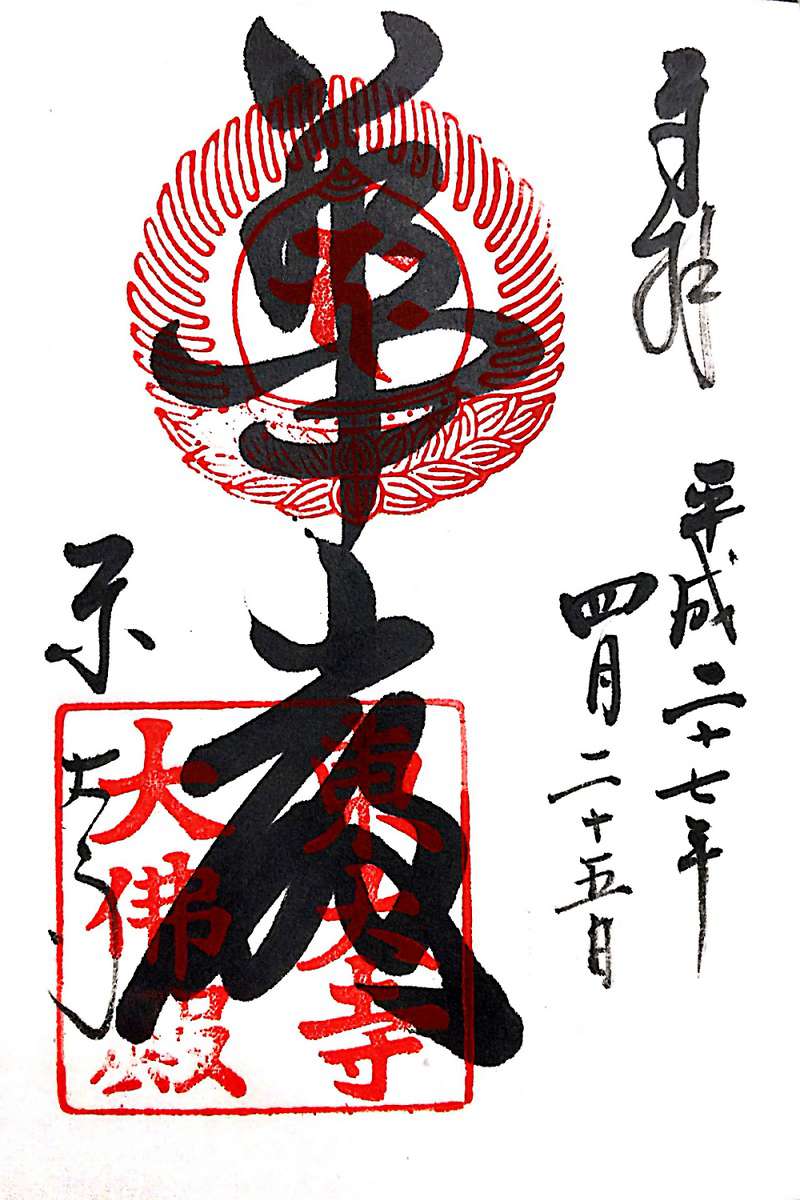 奉拝
平成二十七年
四月二十五日
華嚴
東大寺
東大寺
大佛殿